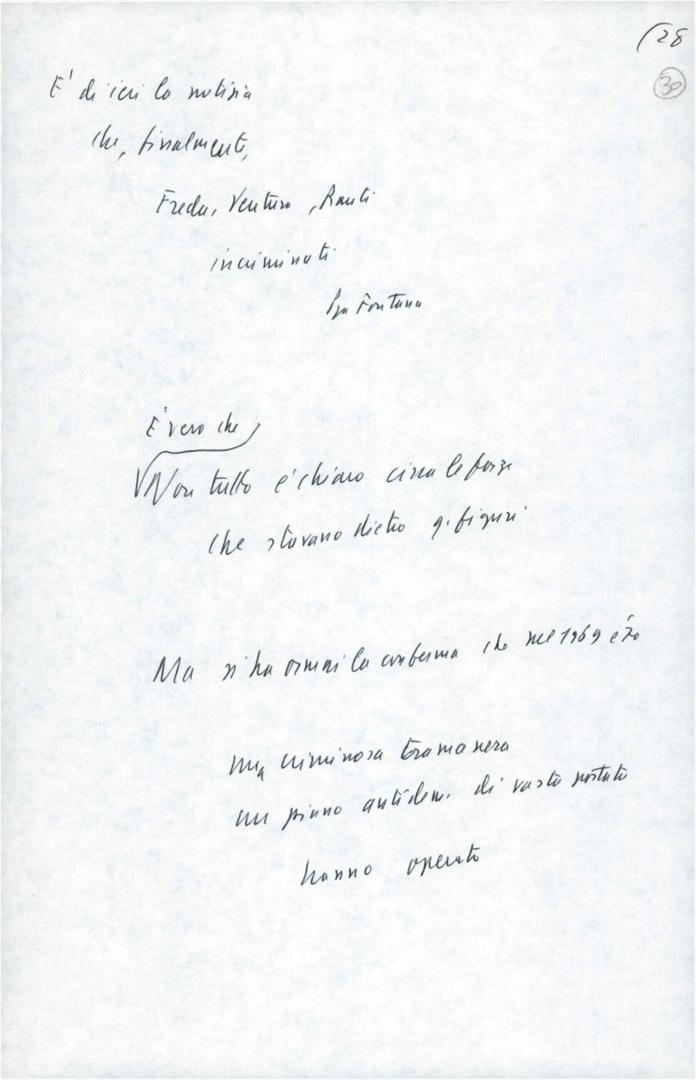 (28
30
E' di ieri la notizia
che, finalmente,
Freda, Ventura, Rauti
incriminati
Pza Fontana
È vero che
Non tutto è chiaro circa le forze
che stavano dietro q. figuri
Ma si ha ormai la conferma che nel 1969 e '70
una criminosa trama nera
un piano antidem. di vasta portata
hanno operato